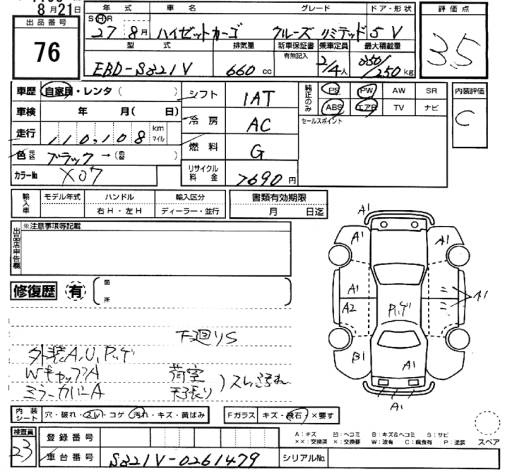 8月21日
年式 車名 グレード ドア・形状 評価点
出品番号 76
S H R 27年 8月 ハイゼットカーゴ クルーズ リミテッド 5 V
3.5
型式 排気量 新車保証書 乗車定員 最大積載量
有無記入
EBD-S321V 660cc 2/4人 350/250kg
車歴 自家用・レンタ( ) シフト 1AT 純正のみ PS PW AW SR 内装評価
C
車検 年 月( 日) 冷房 AC ABS エアB TV ナビ
走行 110,108 km マイル セールスポイント
燃料 G
色 元色 ブラック→(色替 )
カラーNo X07 リサイクル料金 7690円
輸入車 モデル年式 ハンドル 輸入区分 書類有効期限
右H・左H ディーラー・並行 月 日迄
※注意事項等記載
出品店申告欄
修復歴 有 箇所
A1 A1
A1 A1
A2 Pハゲ
B1 A1
A1
下廻りS
外装A,U,Pハゲ
WキャップA 荷室
ミラーカバーA 天張り スレきずあり
内装シート 穴・破れ・スレ・コゲ・汚れ・キズ・黄ばみ Fガラス キズ・飛石・×要す
スペア
検査員 23 登録番号
A:キズ U:ヘコミ B:キズ&ヘコミ S:サビ
××:交換済 X:要交換 W:波有 C:腐食有 P:塗装
車台番号 S321V-0261479 シリアルNo.